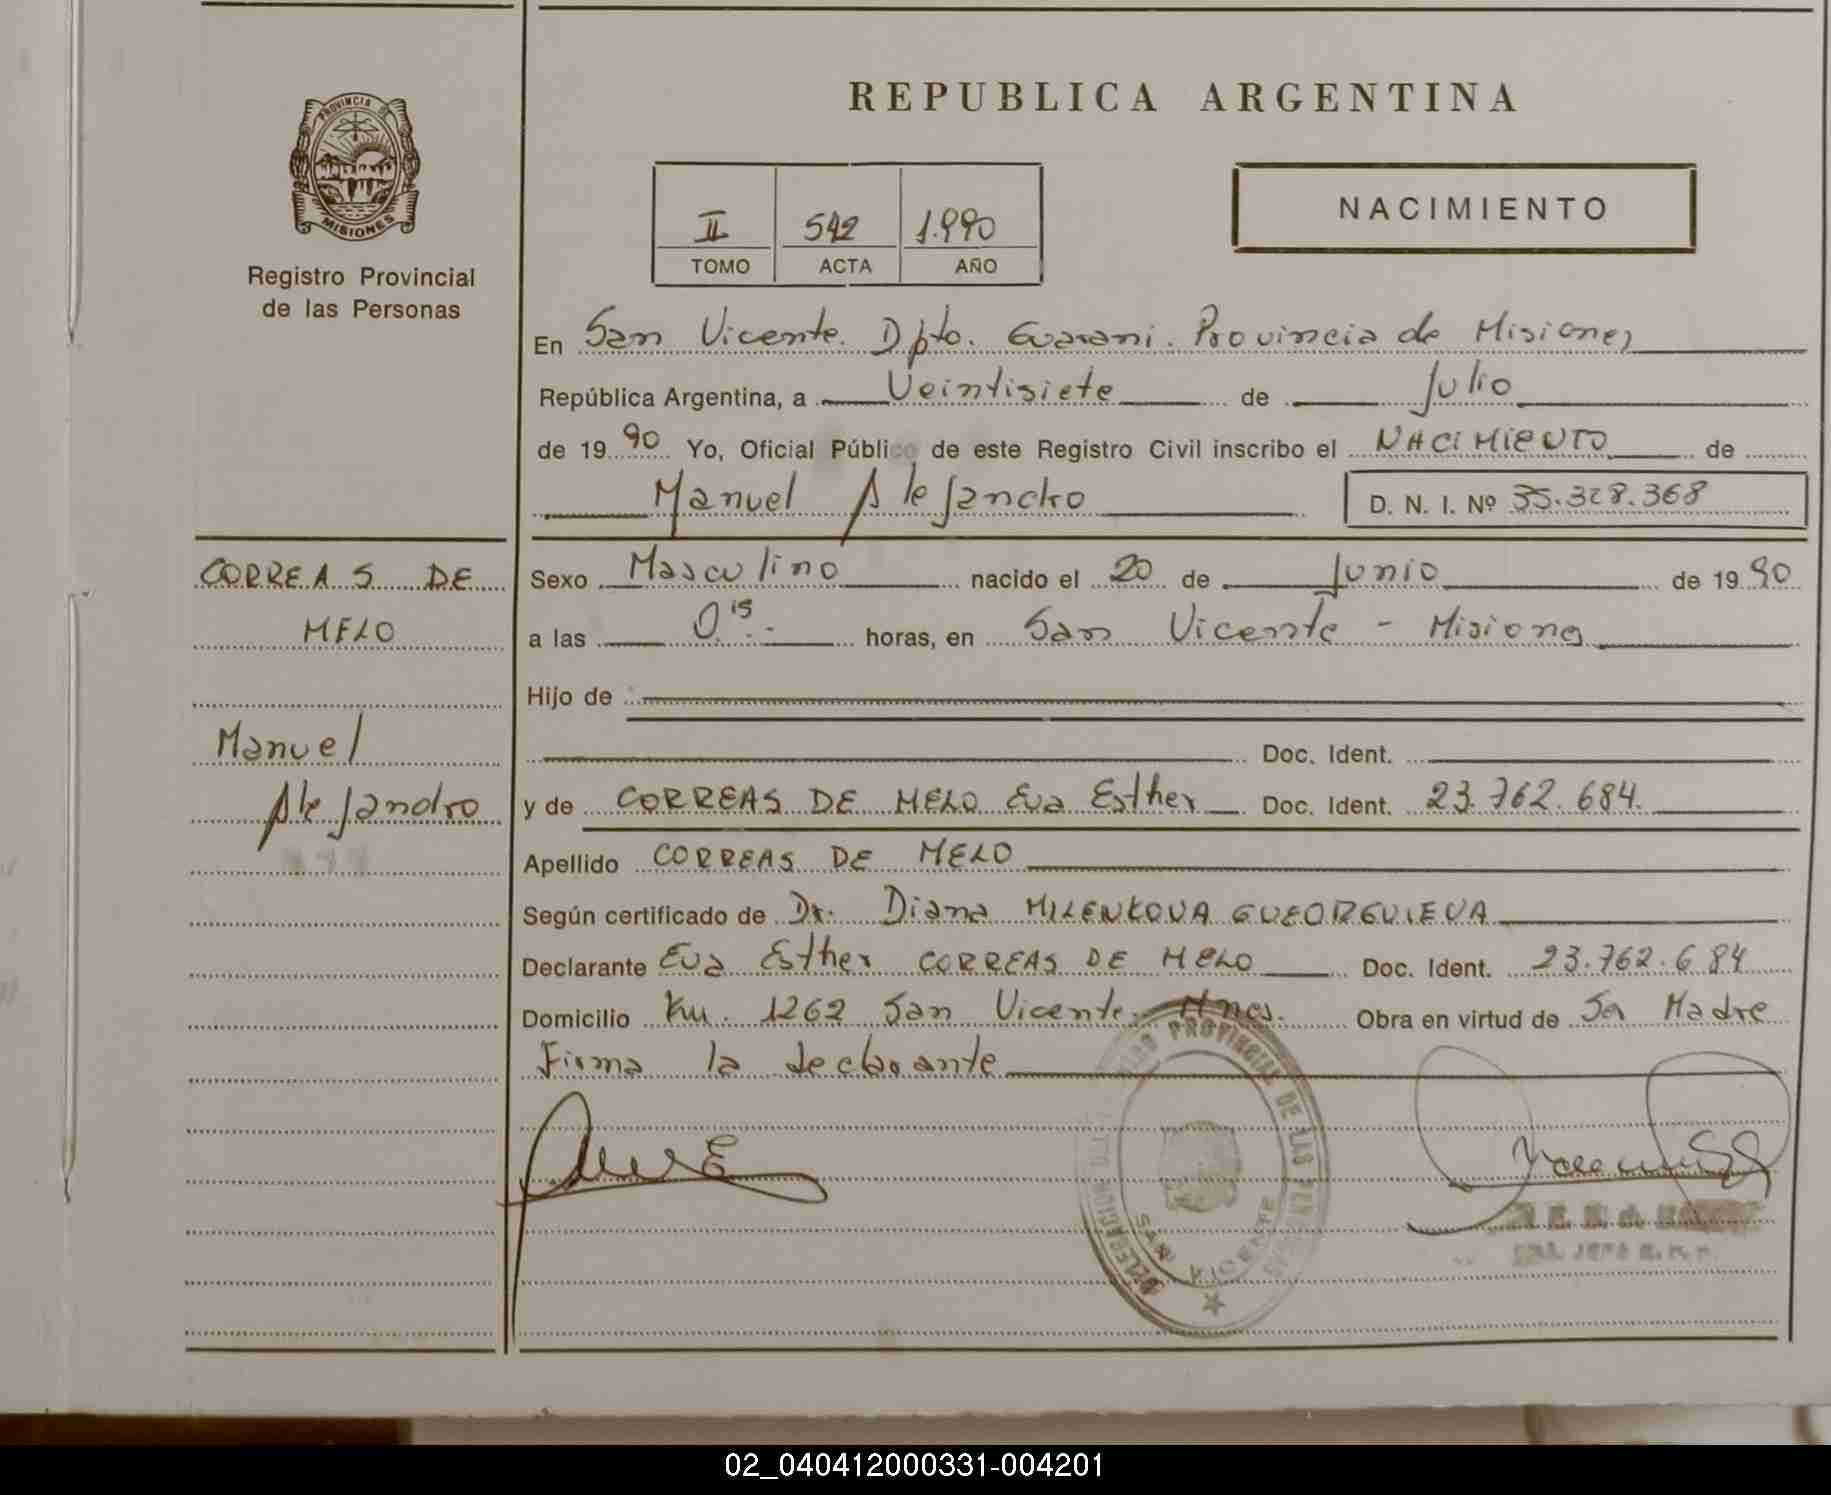 REPUBLICA ARGENTINA
PROVINCIA DE
MISIONES
Registro Provincial
de las Personas
II 542 1.990
TOMO ACTA AÑO
NACIMIENTO
En San Vicente. Dpto. Guarani. Provincia de Misiones
República Argentina, a Veintisiete de Julio
de 1990 Yo, Oficial Público de este Registro Civil inscribo el NACIMIENTO de
Manuel Alejandro D. N. I. Nº 35.328.368
CORREAS DE
MELO
Manuel
Alejandro
Sexo Masculino nacido el 20 de Junio de 1990
a las 0 15 horas, en San Vicente - Misiones
Hijo de
Doc. Ident.
y de CORREAS DE MELO Eva Esther Doc. Ident. 23.762.684.
Apellido CORREAS DE MELO
Según certificado de Dr. Diana MILENKOVA GUEORGUIEVA
Declarante Eva Esther CORREAS DE MELO Doc. Ident. 23.762.684
Domicilio Km. 1262 San Vicente. Mnes. Obra en virtud de Ser Madre
Firma la declarante
PROVINCIAL DE LAS PERSONAS
DELEGACION
SAN VICENTE
02_040412000331-004201